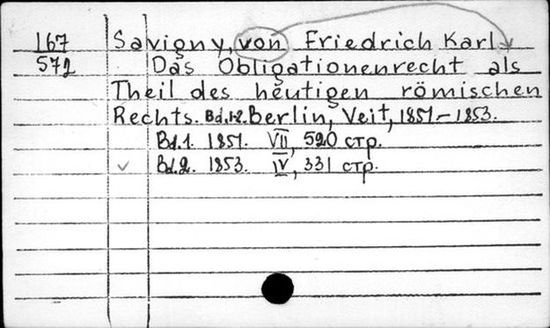 167 Savigny, von Friedrich Karl
572 Das Obligationenrecht als
Theil des heutigen römischen
Rechts. Bd.1-2. Berlin, Veit, 1851-1853.
Bd.1. 1851. VII, 520 стр.
Bd.2. 1853. IV, 331 стр.